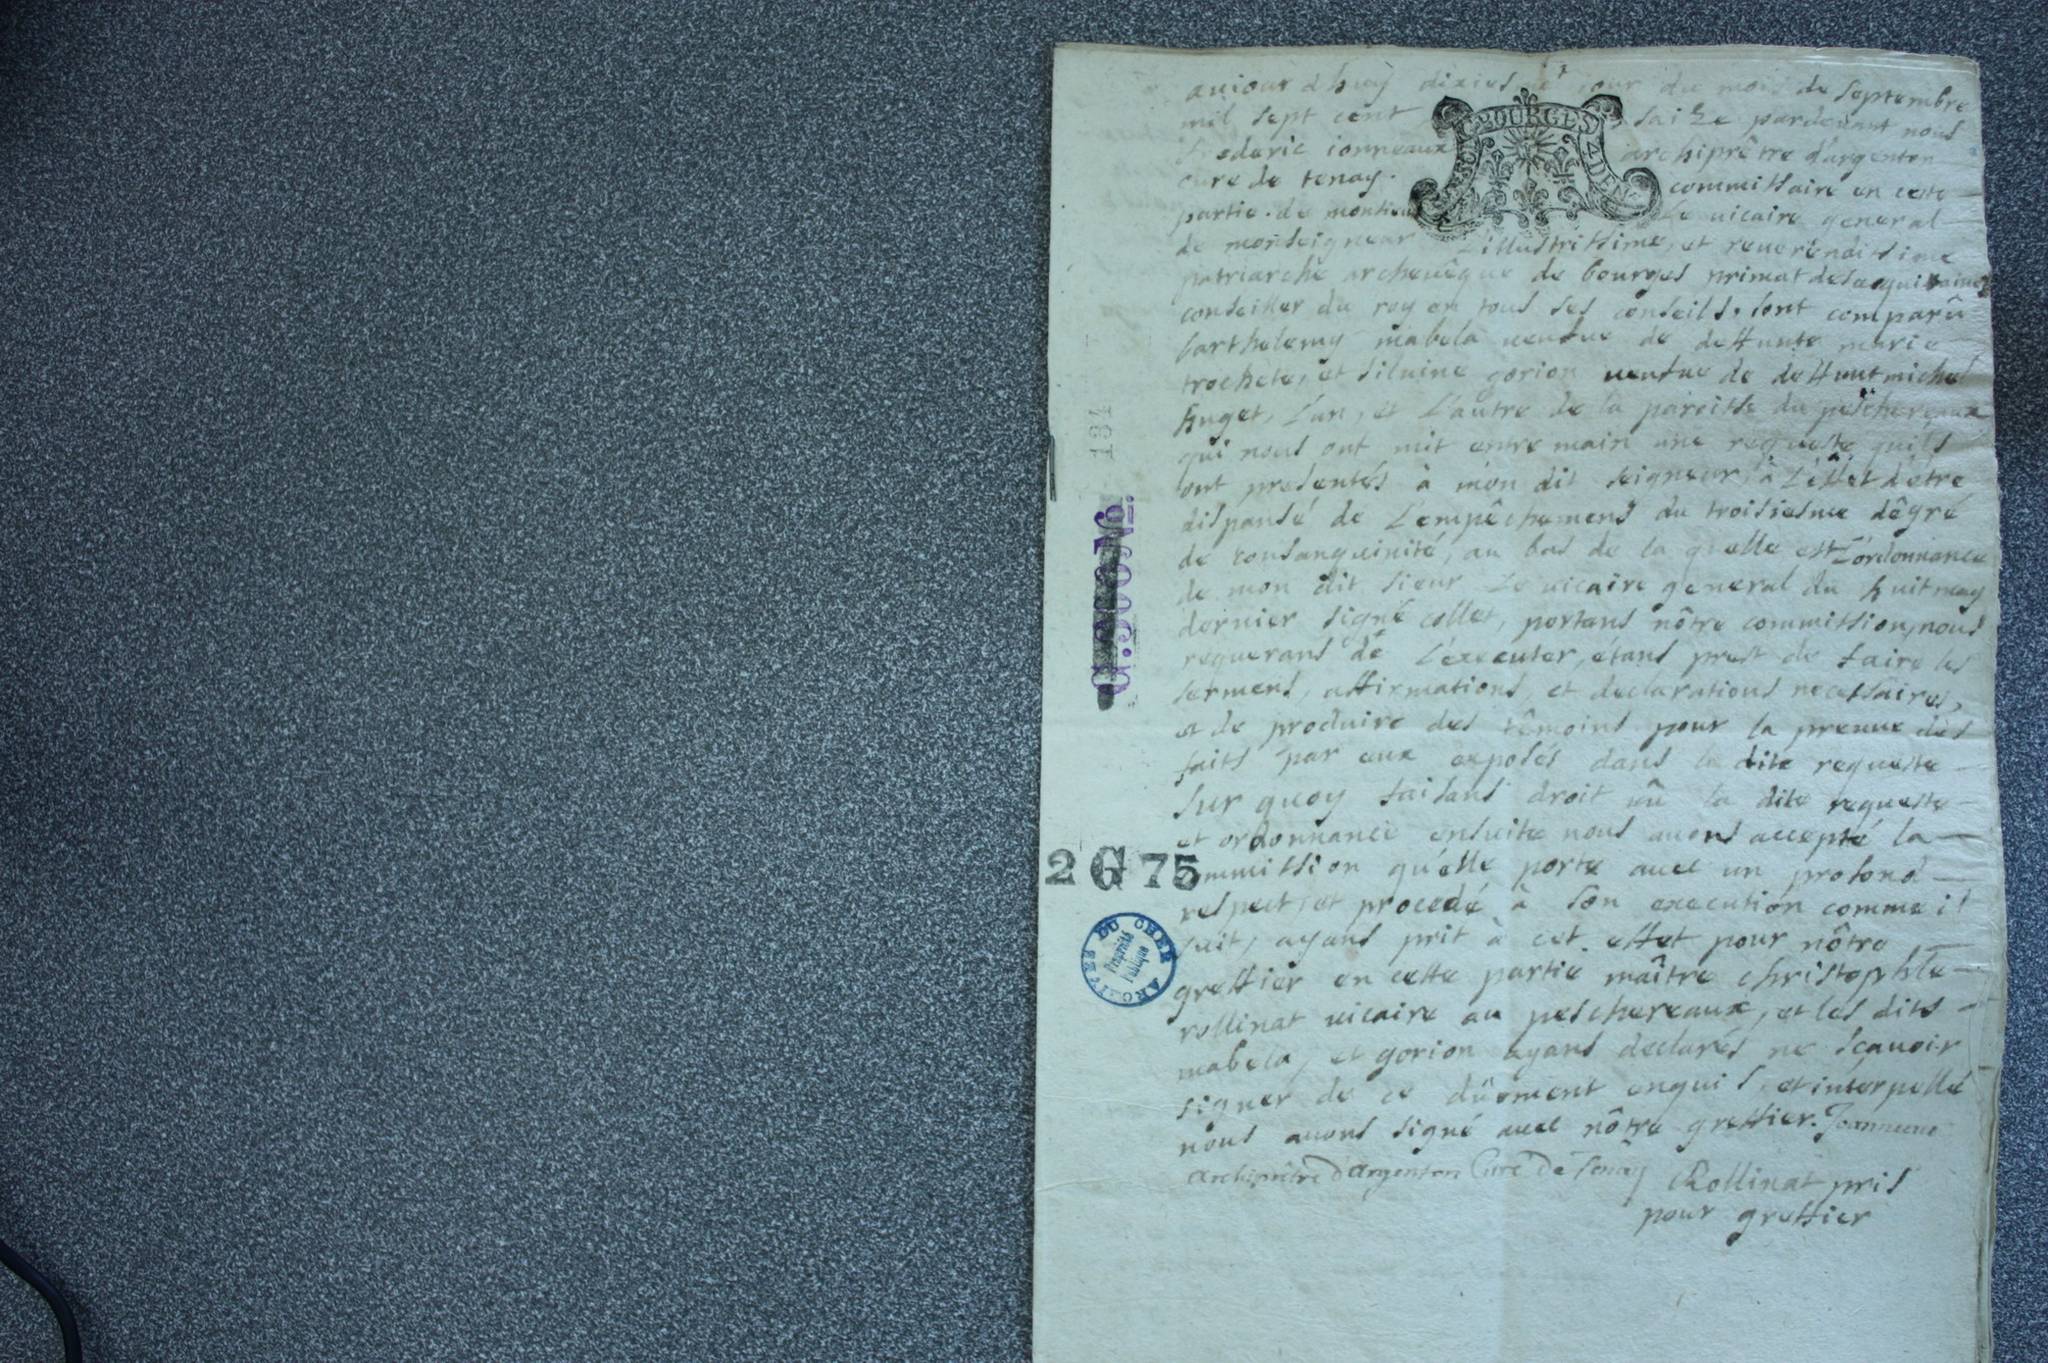 aujour d'huy dixiesme jour du mois de septembre
mil sept cent saize pardevant nous
frederic ionneaux archiprêtre d'argenton
curé de tenay. commissaire en cette
partie. de monsieur le vicaire general
de monseigneur L'illustrissime, et reverendissime
patriarche archevêque de bourges primat des aquitaines
conseiller du roy en tous ses conseils, sont comparû
barthelemy mabela veufve de deffunte marie
trochete, et silvine gorion veufve de deffunt michel
huget, L'un, et L'autre de la paroisse du peschereaux
qui nous ont mit entre main une requeste qu'ils
ont presentés à mon dit seigneur, à L'effet d'être
dispansé de L'empêchement du troisiesme dêgré
de consanguinité, au bas de la quelle est L'ordonnance
de mon dit sieur Le vicaire general du huit may
dernier signé collet, portans nôtre commission, nous
requerans de L'executer, étans prest de faire les
serment, affirmations, et declarations necessaires,
et de produire des têmoins pour la preuve des
faits par eux exposés dans la dite requeste
Sur quoy faisans droit vû la dite requeste
et ordonnance ensuite nous avons accepté la
commission qu'elle porte avec un profond
respect, et procedé à son execution comme il
suit, ayans prit à cet effet pour nôtre
greffier en cette partie maître christophle
rollinat vicaire au peschereaux, et les dits
mabela, et gorion ayans declarés ne scavoir
signer de ce dûement enquis, et interpellé
nous avons signé avec nôtre greffier. Joanneaux
archiprêtre d'argenton Curé De Tenay CRollinat pris
pour greffier
BOURGES
4 DEN
134
G. 300 No.
2 G 75
ARCHIVES DU CHER
Propriété
publique